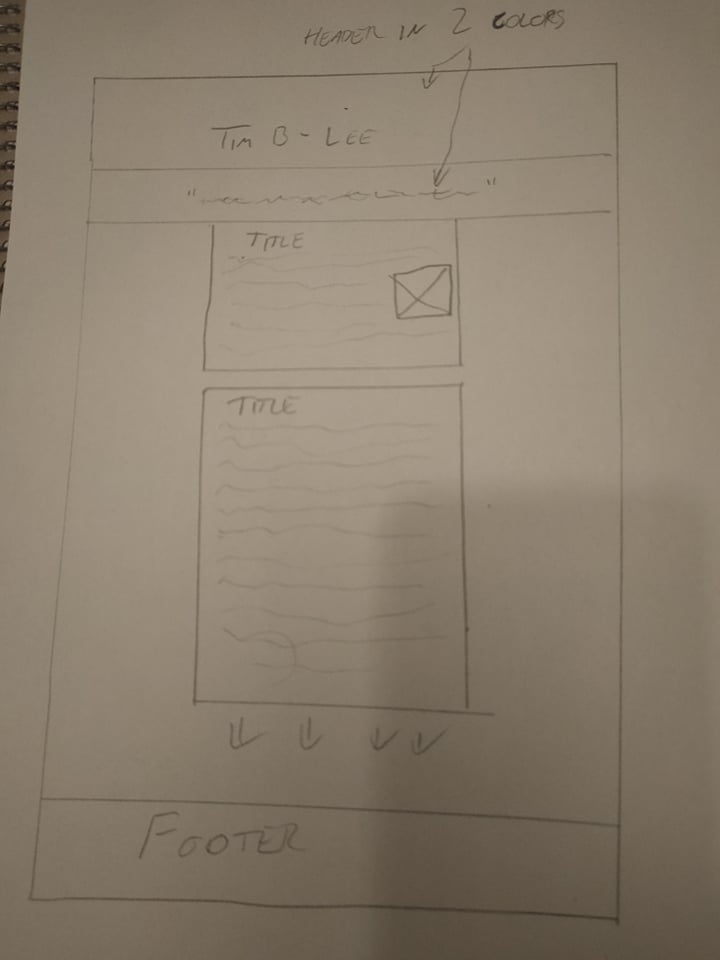 HEADER IN 2 COLORS
TIM B-LEE
TITLE
TITLE
FOOTER